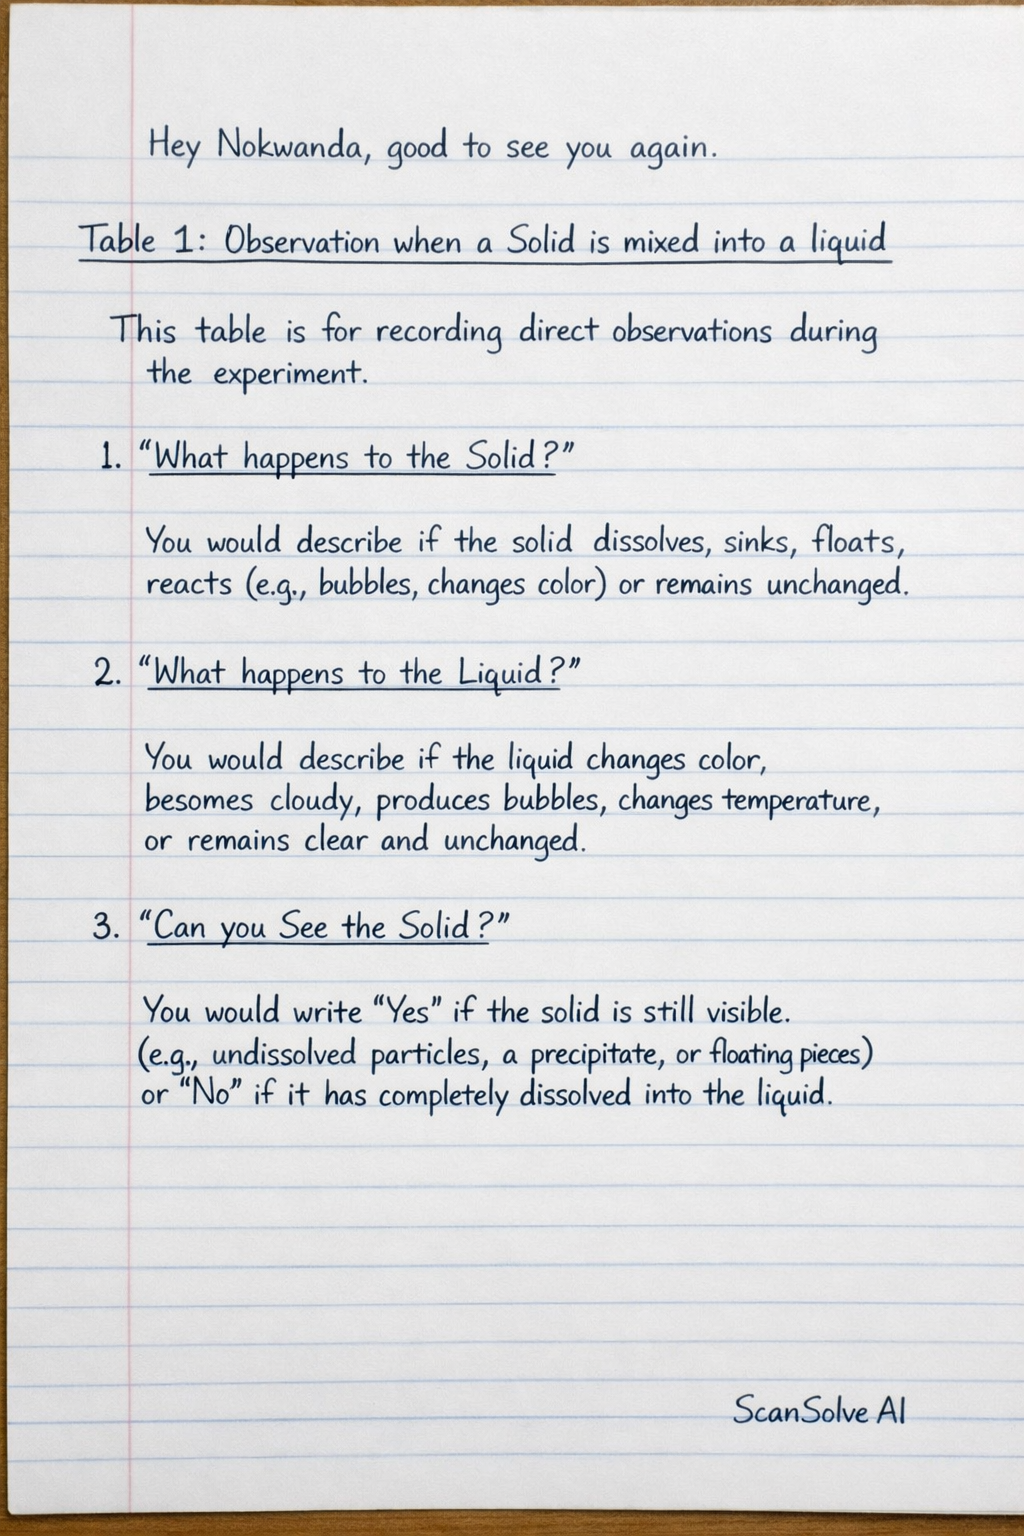 Hey Nokwanda, good to see you again.
Table 1: Observation when a Solid is mixed into a liquid
This table is for recording direct observations during
the experiment.
1. “What happens to the Solid?”
You would describe if the solid dissolves, sinks, floats,
reacts (e.g., bubbles, changes color) or remains unchanged.
2. “What happens to the Liquid?”
You would describe if the liquid changes color,
besomes cloudy, produces bubbles, changes temperature,
or remains clear and unchanged.
3. “Can you See the Solid?”
You would write “Yes” if the solid is still visible.
(e.g., undissolved particles, a precipitate, or floating pieces)
or “No” if it has completely dissolved into the liquid.
ScanSolve AI